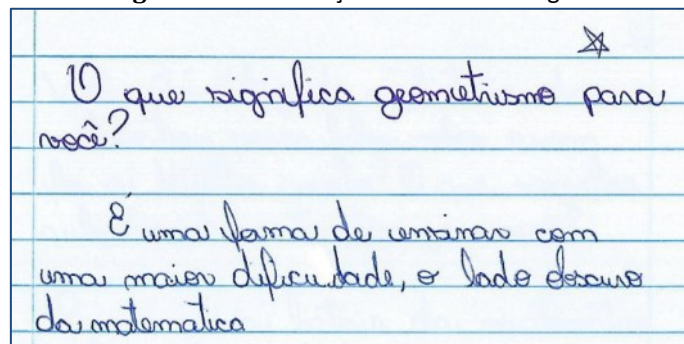 O que significa geometrismo para
você?
É uma forma de ensinar com
uma maior dificuldade, o lado escuro
da matematica